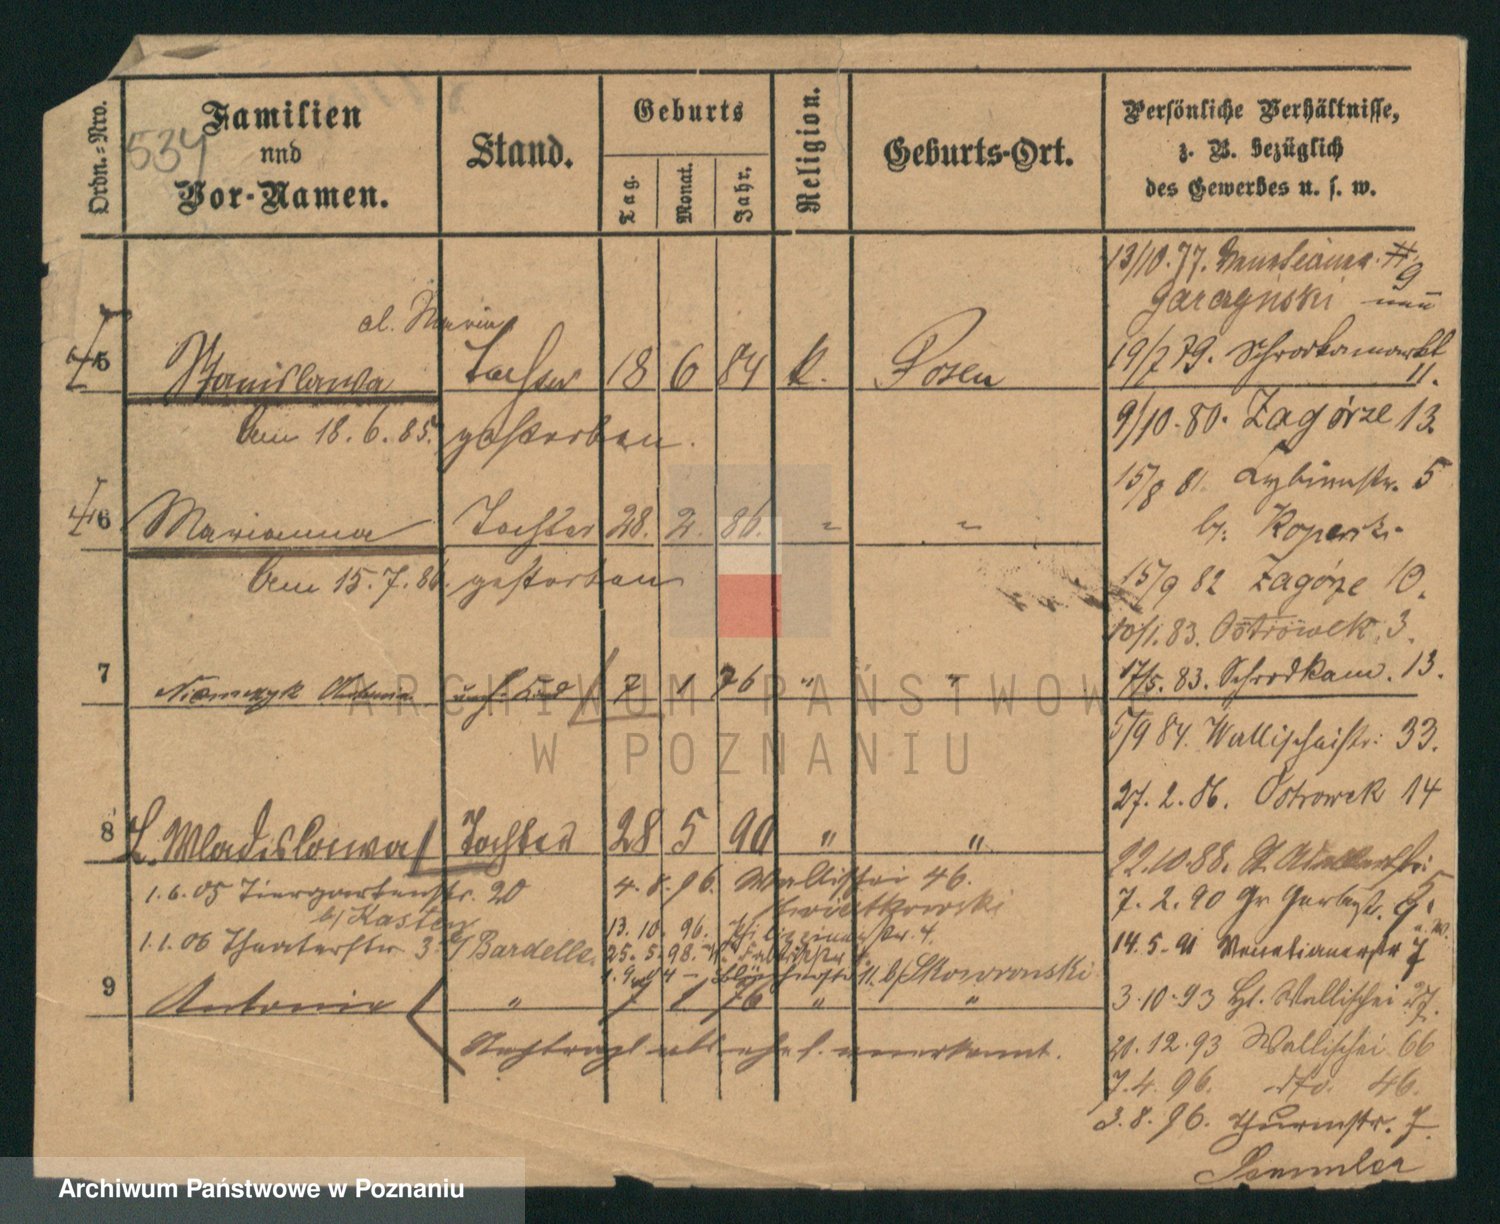 Ordn.-Nro.
Familien
und
Vor-Namen.
534
Stand.
Geburts
Tag.
Monat.
Jahr.
Religion.
Geburts-Ort.
Persönliche Verhältnisse,
z. B. bezüglich
des Gewerbes u. s. w.
al. Maria
5 Stanislawa Tochter 18 6 84 k. Posen
Am 18. 6. 85. gestorben.
6 Marianna Tochter 28. 2. 86. " "
Am 15. 7. 86. gestorben
7 Niemczyk Antonie unehl. Kind 7 1 76 " "
8 L. Wladislawa Tochter 28 5 90 " "
1. 6. 05 Tiergartenstr. 20
b/ Kasten
1. 1. 06 Theaterstr. 3. b/ Bardelle.
4. 8. 96. Wallischei 46.
Kwiatkowski
13. 10. 96. str. 4.
25. 5. 98.
1. 9. 04 11. b/ Skowronski
9 Antonie " 7 1 76 " "
Nachträgl. als ehel. anerkannt.
13/10. 77. Venetianer 9
Garczynski
19/7 79. Schrodkamarkt 11.
9/10. 80. Zagórze 13.
15/8 81. Cybinastr. 5
b/. Koperski
15/9 82 Zagórze 10.
10/1. 83. Ostrówek 3.
17/5. 83. Schrodkam. 13.
5/9 84. Wallischeistr: 33.
27. 2. 86. Ostrowek 14
22. 10. 88. St. Adalbertstr: 5
7. 2. 90 Gr. Gerberstr. 9.
14. 5. 91 Venetianerstr 7
3. 10. 93 Wallischei 27.
20. 12. 93 Wallischei 66
7. 4. 96. dto. 46.
3. 8. 96. Thurmstr. 7.
Semmler
ARCHIWUM PAŃSTWOWE
W POZNANIU
Archiwum Państwowe w Poznaniu